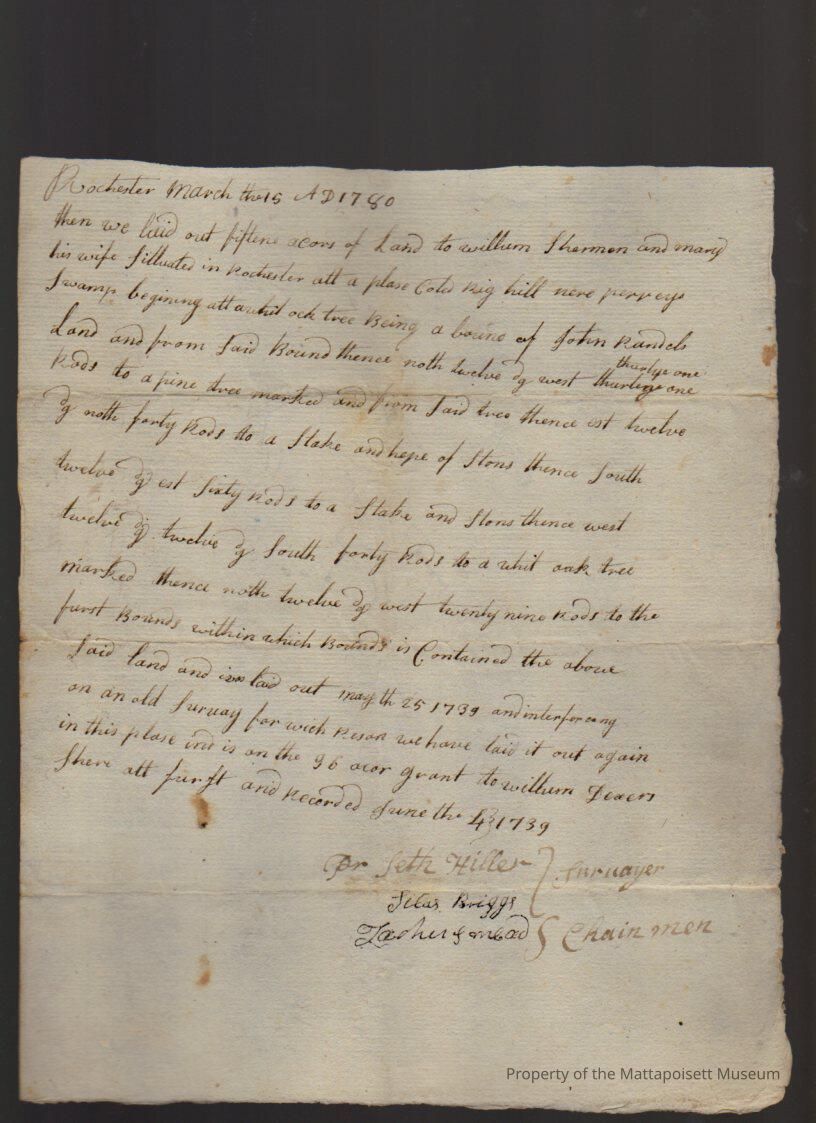 Rochester march the 15 AD 1780
then we laid out fiftene acors of Land to willium Shermon and mary
his wife Sittuated in Rochester att a plase Cold Rig hill nere perreys
Swamp begining att a whit ock tree Being a bound of John Randels
Land and from Said Bound thence noth twelve dg west thurtey one
thurtye one
Rods to a pine tree marked and from Said tree thence est twelve
dg noth forty Rods to a Stake and hepe of Stons thence South
twelve dg est Sixty Rods to a Stake and Stons thence west
twelve dg twelve dg South forty Rods to a whit oak tree
marked thence noth twelve dg west twenty nine Rods to the
furst Bounds within which Bounds is Contained the above
Said land and was laid out may th 25 1739 and interfereing
on an old Survay for wich Reson we have laid it out again
in this plase and is on the 96 acor grant to willium Dexers
Shere att furst and Recorded June the 4 1739
Pr Seth Hiller } Survayer
Silas Briggs
mead } Chain men
Property of the Mattapoisett Museum